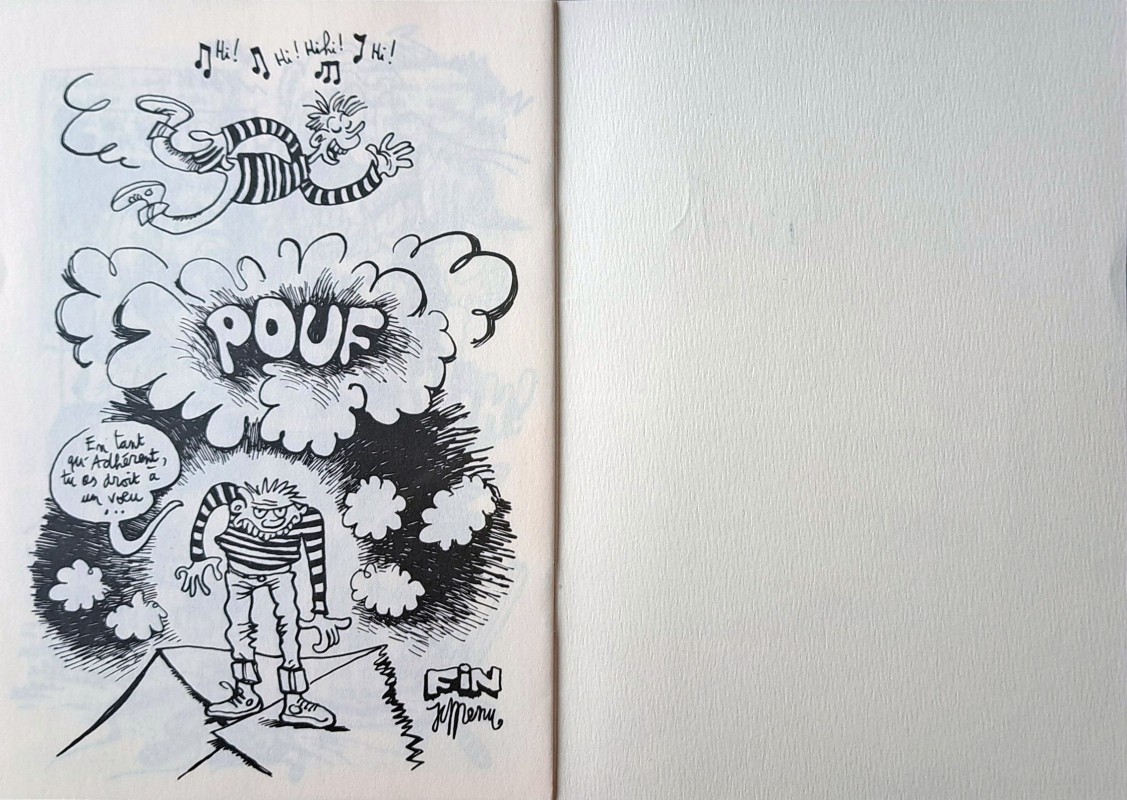 Hi!
Hi! Hihi!
Hi!
POUF
En tant
qu'Adhérent,
tu as droit à
un vœu
...
FiN
JCMenu.